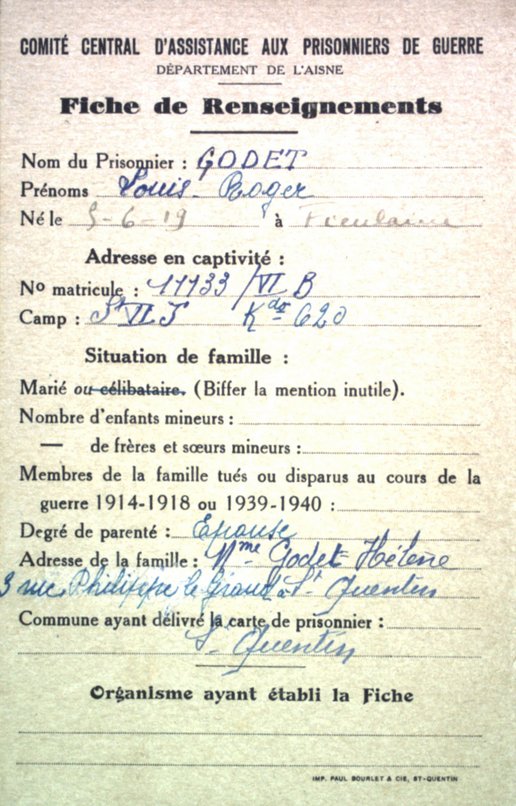 COMITÉ CENTRAL D'ASSISTANCE AUX PRISONNIERS DE GUERRE
DÉPARTEMENT DE L'AISNE
Fiche de Renseignements
Nom du Prisonnier : GODET
Prénoms Louis Roger
Né le 5-6-19 à Fieulaine
Adresse en captivité :
No matricule : 11133/VI B
Camp : St VI J Kdo 620
Situation de famille :
Marié ou célibataire. (Biffer la mention inutile).
Nombre d'enfants mineurs :
— de frères et sœurs mineurs :
Membres de la famille tués ou disparus au cours de la
guerre 1914-1918 ou 1939-1940 :
Degré de parenté : Epouse
Adresse de la famille : Mme Godet Hélène
3 rue Philippe le Grand à St Quentin
Commune ayant délivré la carte de prisonnier :
St Quentin
Organisme ayant établi la Fiche
IMP. PAUL BOURLET & CIE, ST-QUENTIN